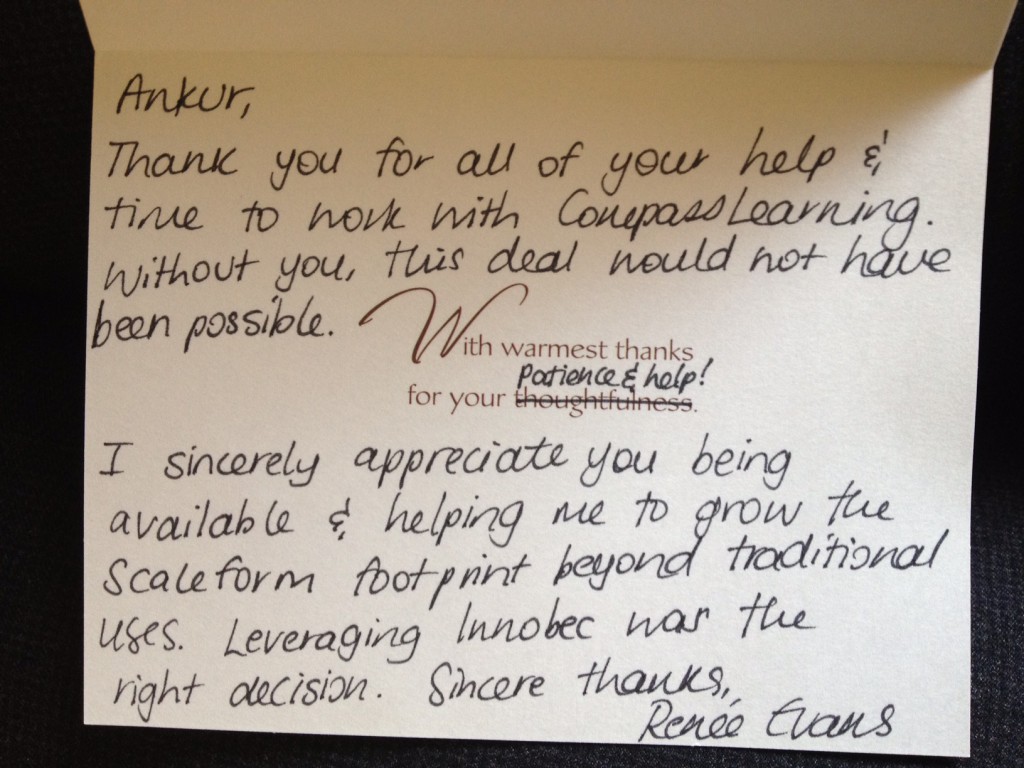 Ankur,
Thank you for all of your help &
time to work with CompassLearning.
Without you, this deal would not have
been possible.
With warmest thanks
Patience & help!
for your thoughtfulness.
I sincerely appreciate you being
available & helping me to grow the
Scaleform footprint beyond traditional
uses. Leveraging Innobec was the
right decision. Sincere thanks,
Renée Evans